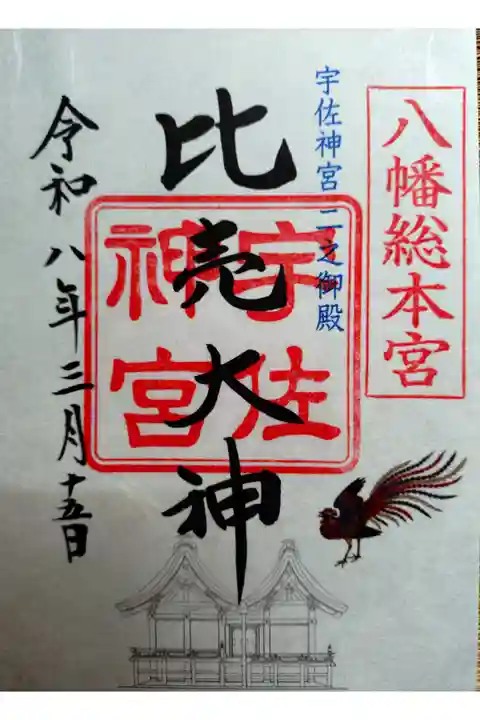 八幡総本宮
宇佐神宮 二之御殿
比売大神
宇佐
神宮
令和八年三月十五日